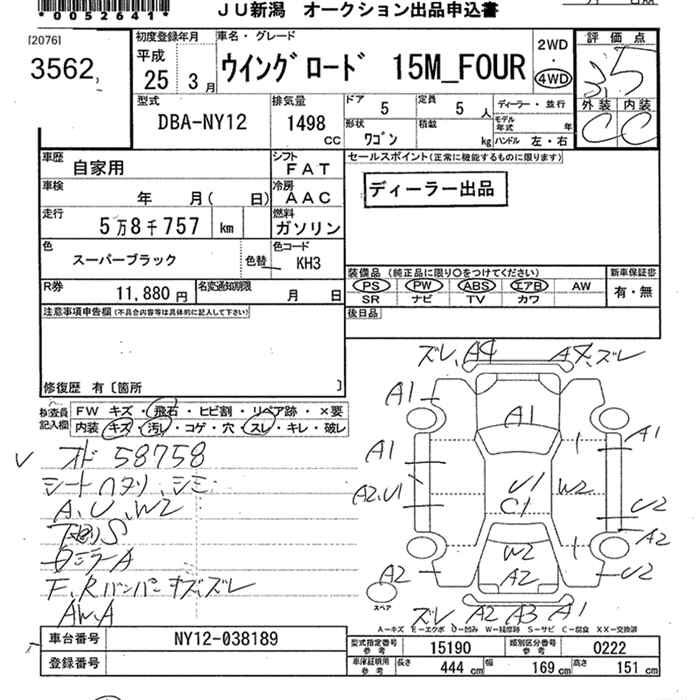 *0052641*
JU新潟 オークション出品申込書
[2076]
3562
初度登録年月
平成
25 3月
車名・グレード
ウイングロード 15M_FOUR
2WD
・
4WD
評価点
3.5
外装 内装
C C
型式
DBA-NY12
排気量
1498
CC
ドア 5
定員 5人
形状 ワゴン
積載 kg
ディーラー・並行
モデル年式 年
ハンドル 左・右
車歴 自家用
シフト FAT
車検 年 月( 日)
冷房 AAC
走行 5万8千757 km
燃料 ガソリン
色 スーパーブラック
色替
色コード KH3
R券 11,880円
名変通知期限 月 日
セールスポイント(正常に機能するものに限ります)
ディーラー出品
装備品(純正品に限り○をつけてください)
新車保証書
PS PW ABS エアB AW
有・無
SR ナビ TV カワ
後日品
注意事項申告欄(不具合内容等は具体的に記入して下さい)
修復歴 有〔箇所 〕
検査員記入欄
FW キズ・飛石・ヒビ割・リペア跡・×要
内装 キズ・汚レ・コゲ・穴・スレ・キレ・破レ
オド 58758
シートヘタリ、シミ
A、U、W2
下廻りS
ミラーA
F、Rバンパーキズ、ズレ
AW、A
ズレ、A4 A4、ズレ
A1
A1
A1
A1
A2、U1
U1
C1
W2
U2
A2
W2
A2
A2
U2
スペア
ズレ A2 A3 A1
A－キズ E－エクボ U－凹み W－補修跡 S－サビ C－腐食 XX－交換済
車台番号 NY12-038189
登録番号
型式指定番号 参考 15190
類別区分番号 参考 0222
車庫証明用 参考 長さ 444 cm 幅 169 cm 高さ 151 cm